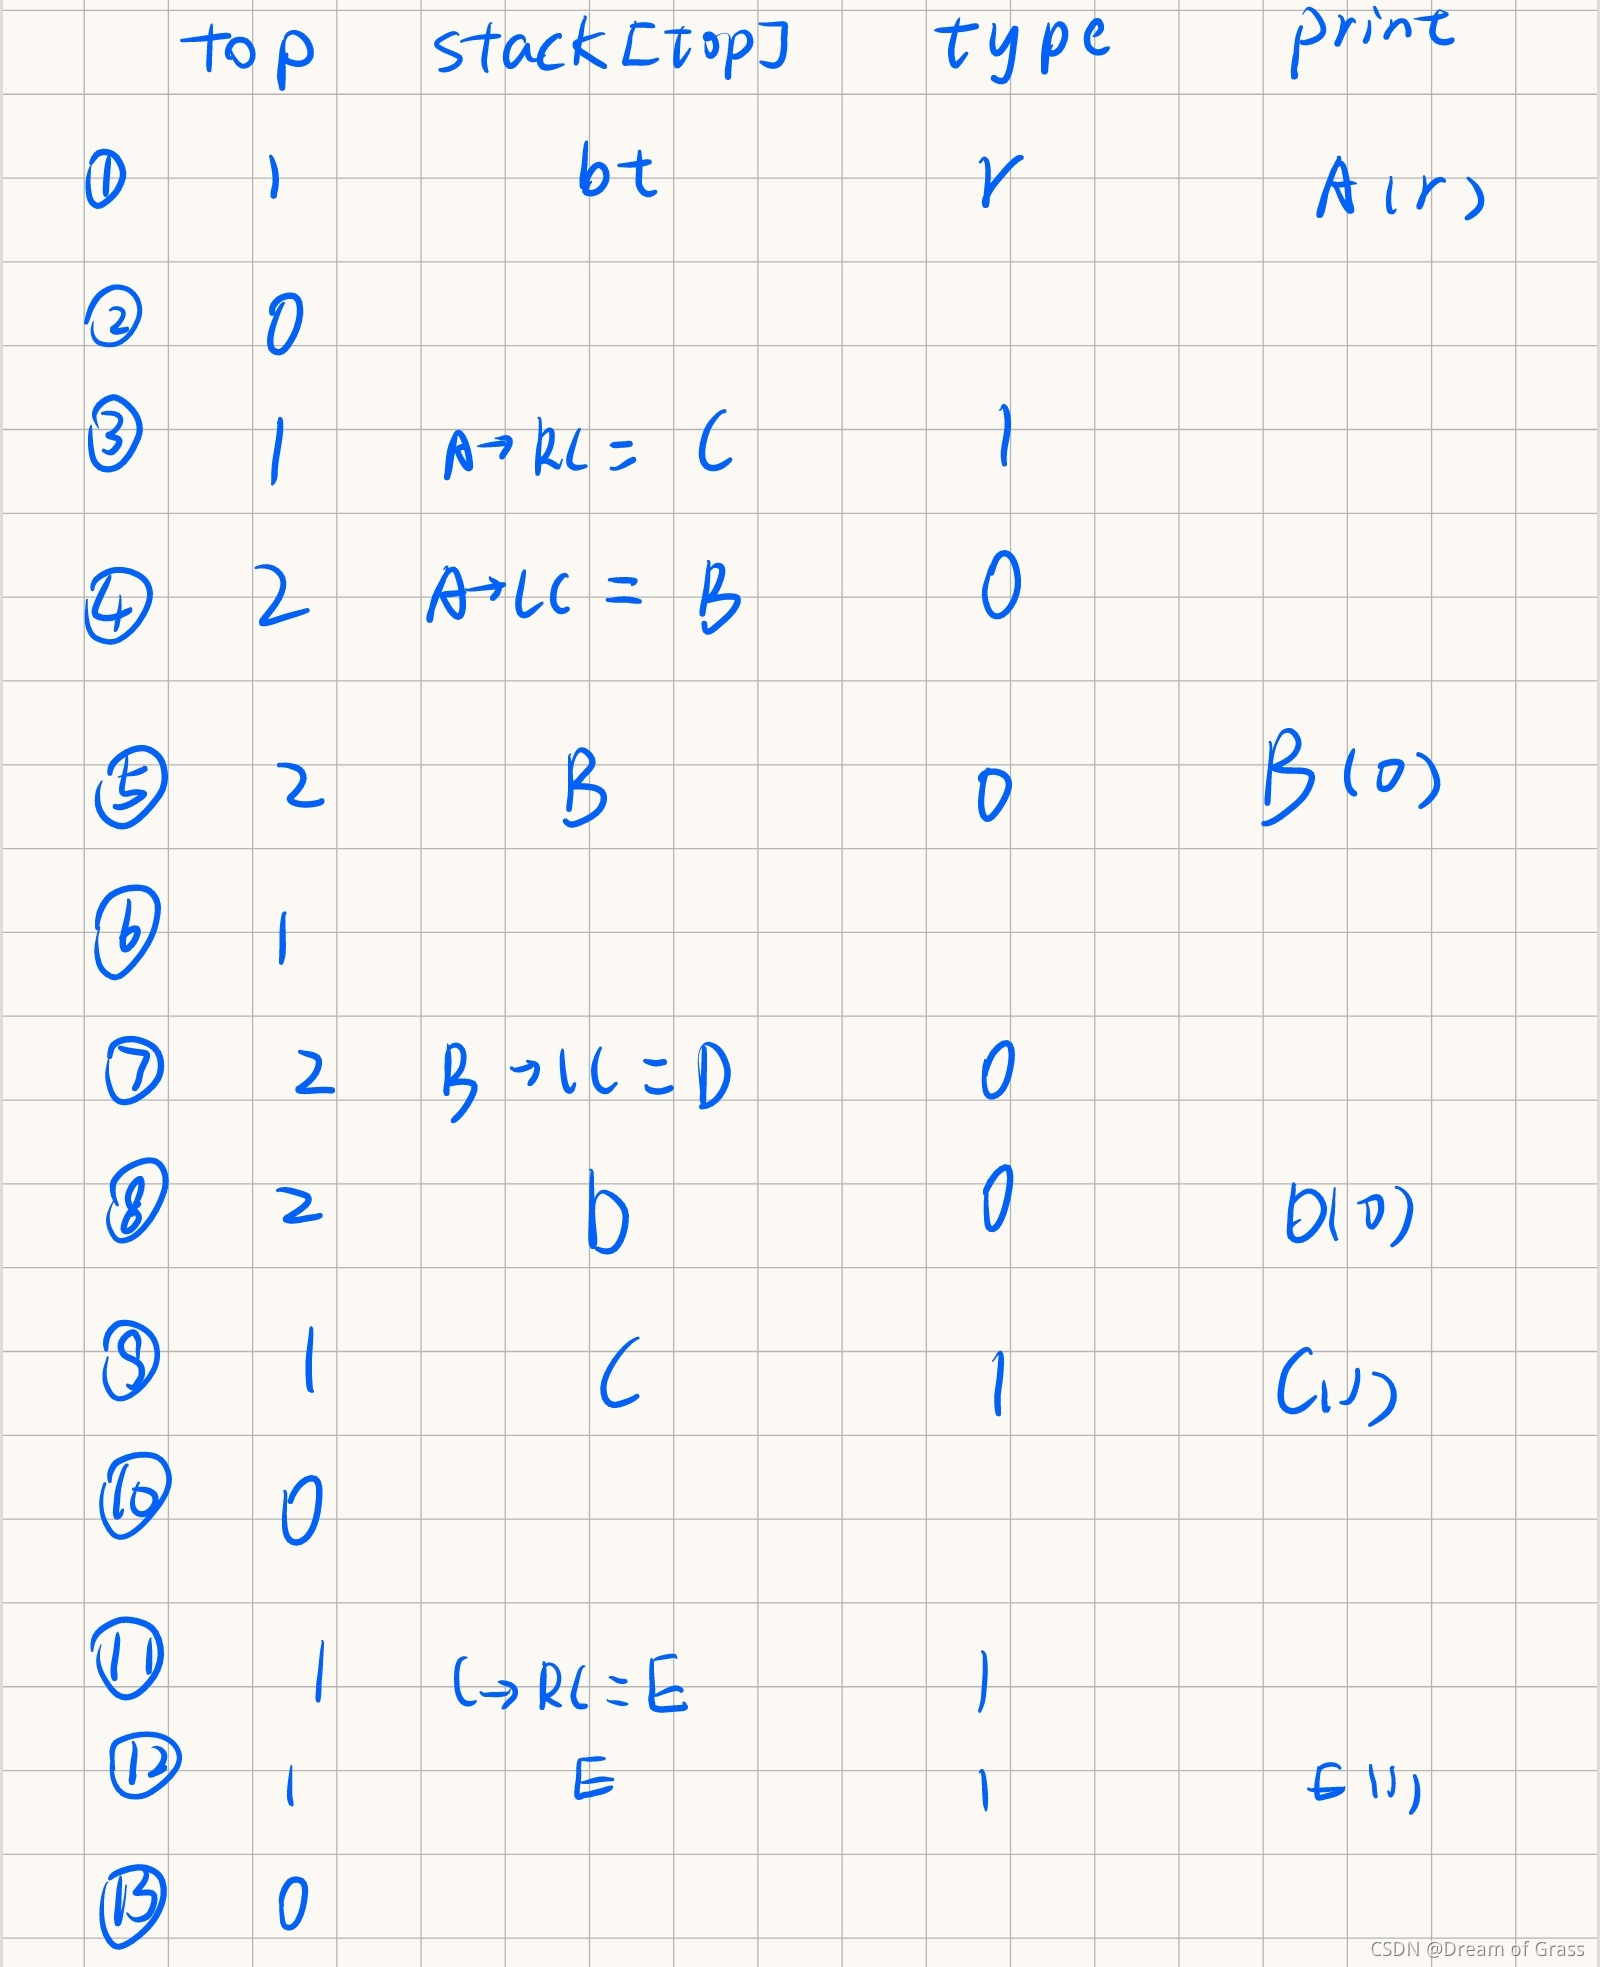 top stack[top] type print
① 1 bt r A(r)
② 0
③ 1 A→RC = C 1
④ 2 A→LC = B 0
⑤ 2 B 0 B(0)
⑥ 1
⑦ 2 B→LC = D 0
⑧ 2 D 0 D(0)
⑨ 1 C 1 C(1)
⑩ 0
⑪ 1 C→RC = E 1
⑫ 1 E 1 E(1)
⑬ 0
CSDN @Dream of Grass